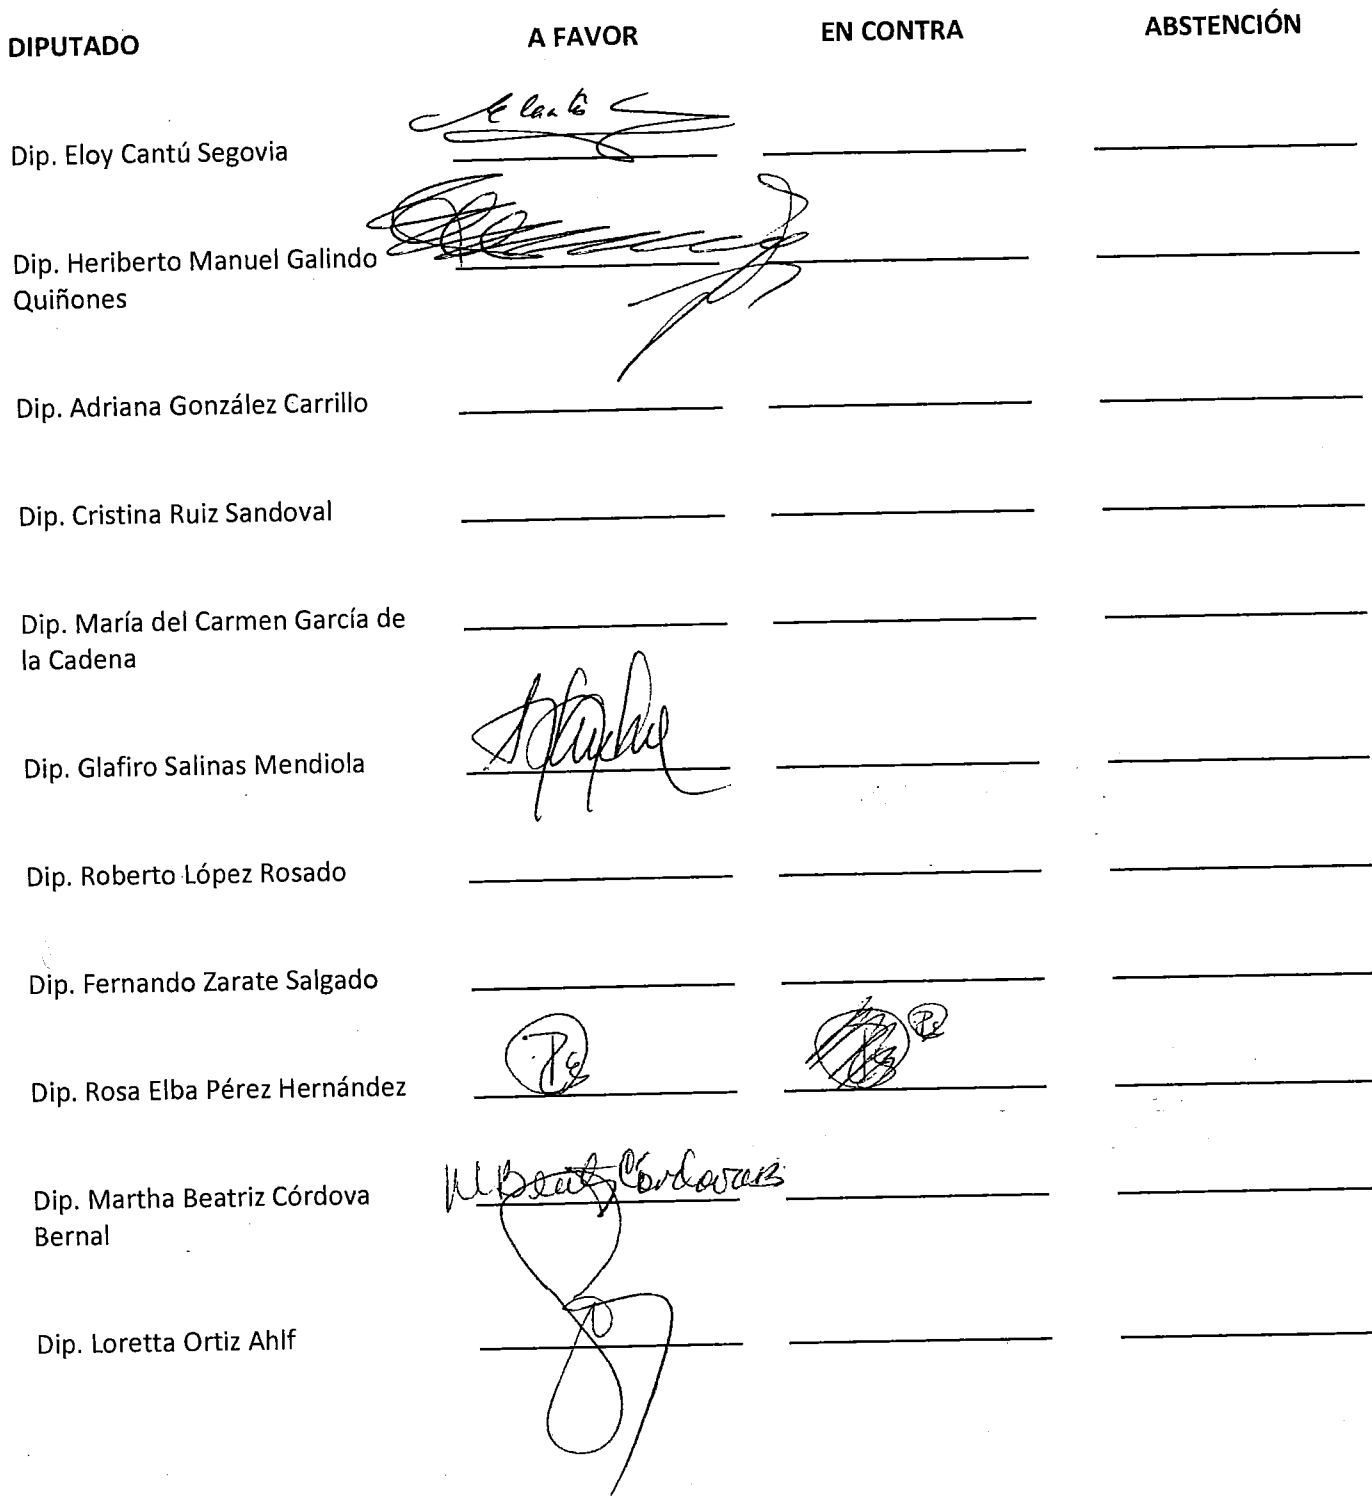 DIPUTADO A FAVOR EN CONTRA ABSTENCIÓN
Dip. Eloy Cantú Segovia
Dip. Heriberto Manuel Galindo
Quiñones
Dip. Adriana González Carrillo
Dip. Cristina Ruiz Sandoval
Dip. María del Carmen García de
la Cadena
Dip. Glafiro Salinas Mendiola
Dip. Roberto López Rosado
Dip. Fernando Zarate Salgado
Dip. Rosa Elba Pérez Hernández
M Beatriz Córdova B
Dip. Martha Beatriz Córdova
Bernal
Dip. Loretta Ortiz Ahlf